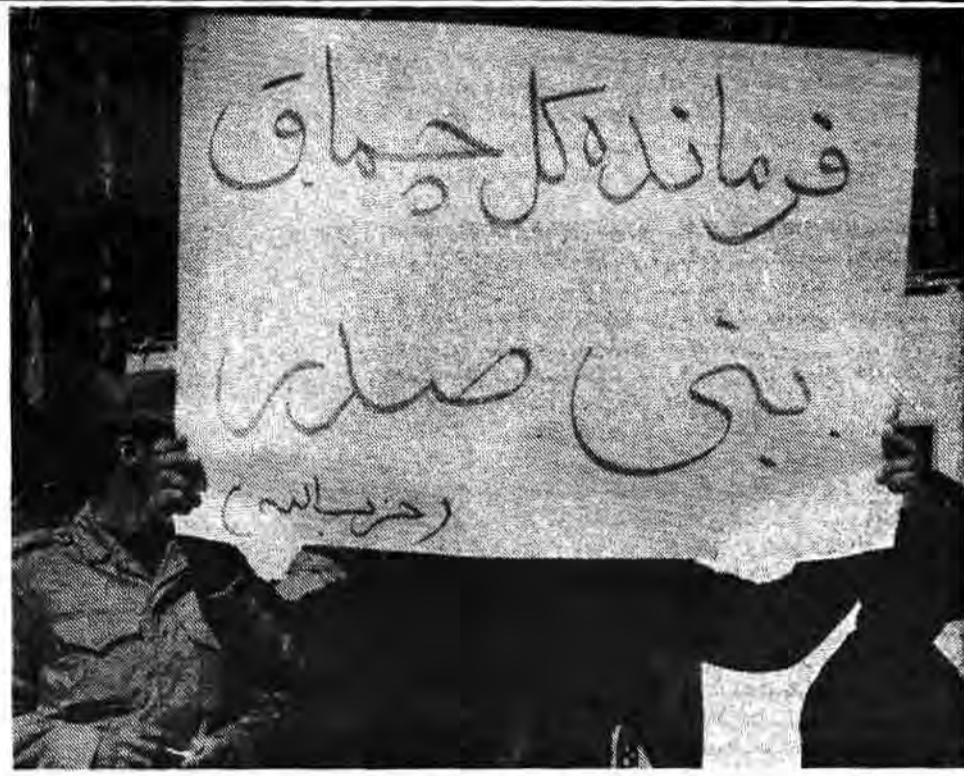 فرمانده کل چماق
بنی صدر
(حزب الله)